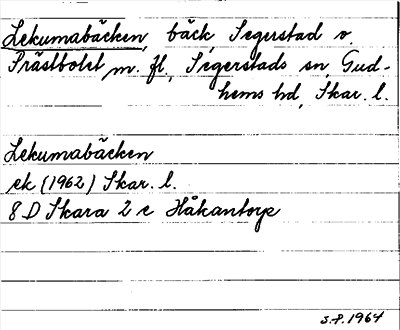 Lekumabäcken, bäck, Segerstad o.
Prästbolet m. fl., Segerstads sn, Gud-
hems hd, Skar. l.
Lekumabäcken
ek (1962) Skar. l.
8 D Skara 2 e Håkantorp
1964